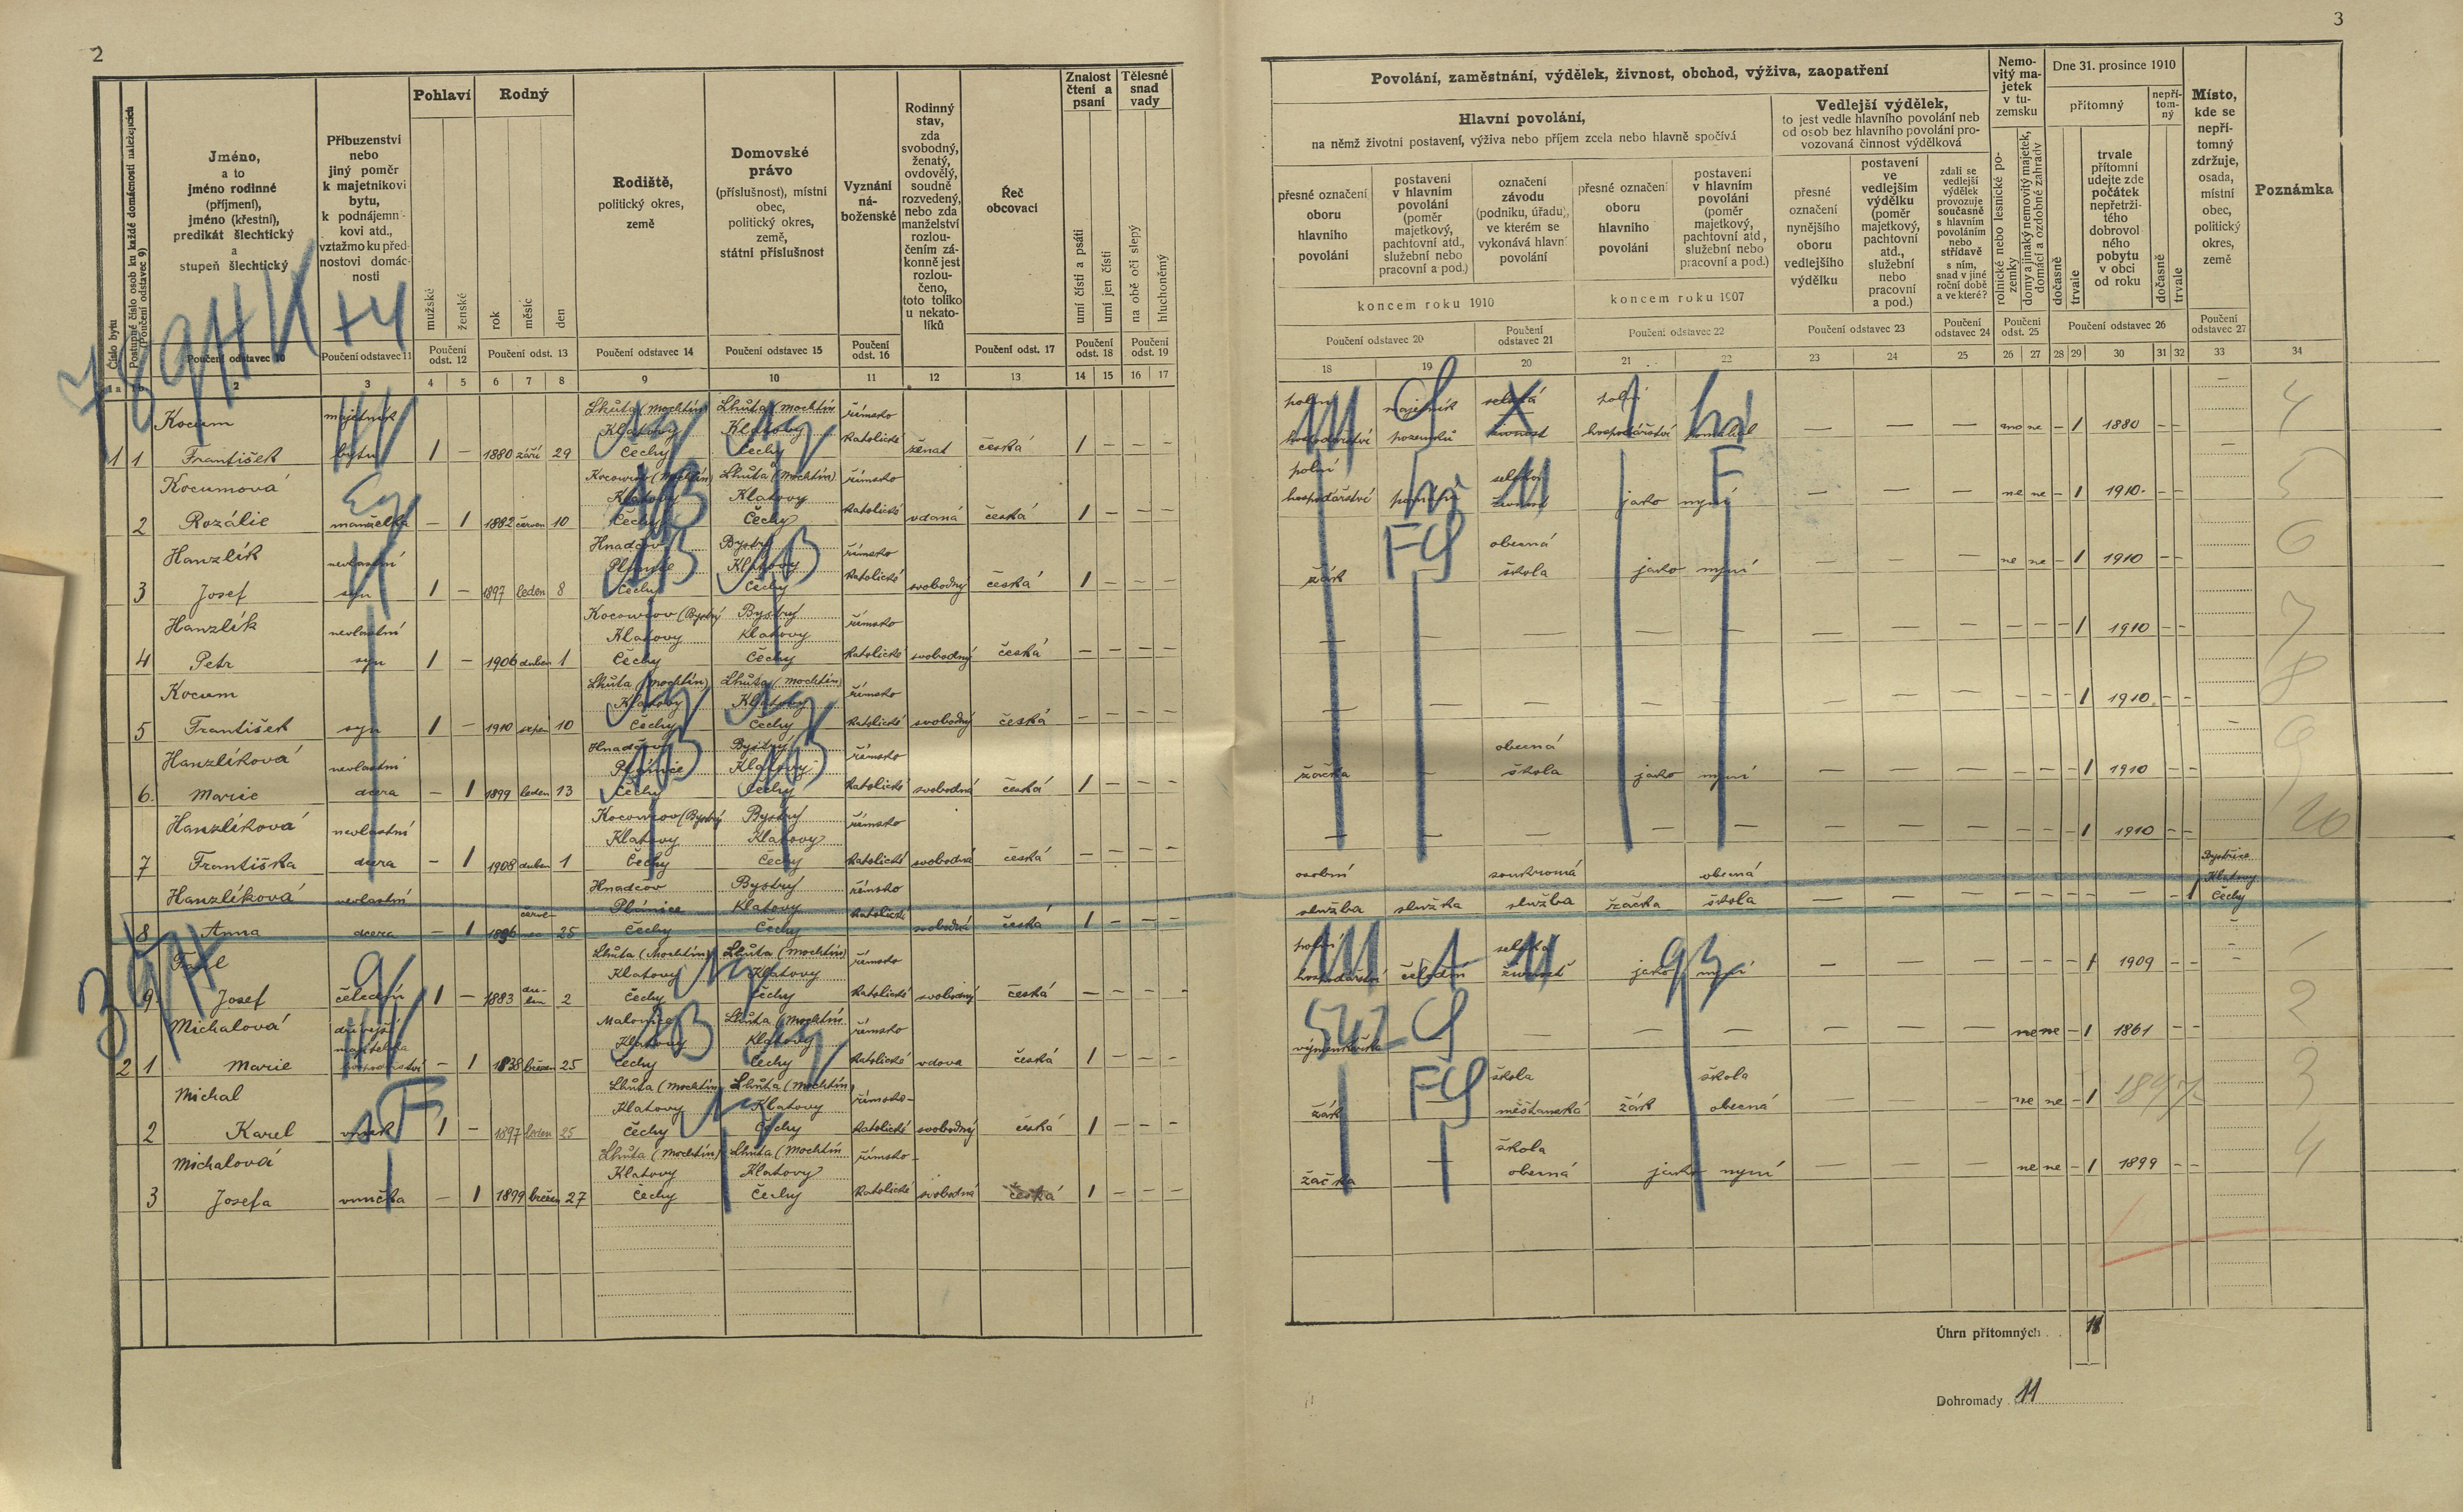 2
3
Číslo bytu
Postupné číslo osob ku každé domácnosti náležejících
(Poučení odstavec 9)
Jméno,
a to
jméno rodinné
(příjmení),
jméno (křestní),
predikát šlechtický
a
stupeň šlechtický
Poučení odstavec 10
Příbuzenství
nebo
jiný poměr
k majetníkovi
bytu,
k podnájemní-
kovi atd.,
vztažmo ku před-
nostovi domác-
nosti
Poučení odstavec 11
Pohlaví
mužské
ženské
Poučení
odst. 12
Rodný
rok
měsíc
den
Poučení odst. 13
Rodiště,
politický okres,
země
Poučení odstavec 14
Domovské
právo
(příslušnost), místní
obec,
politický okres,
země,
státní příslušnost
Poučení odstavec 15
Vyznání
ná-
boženské
Poučení
odst. 16
Rodinný
stav,
zda
svobodný,
ženatý,
ovdovělý,
soudně
rozvedený,
nebo zda
manželství
rozlou-
čením zá-
konně jest
rozlou-
čeno,
toto toliko
u nekato-
líků
Řeč
obcovací
Poučení odst. 17
Znalost
čtení a
psaní
umí čísti a psáti
umí jen čísti
Poučení
odst. 18
Tělesné
snad
vady
na obě oči slepý
hluchoněmý
Poučení
odst. 19
1 a 2 3 4 5 6 7 8 9 10 11 12 13 14 15 16 17
Povolání, zaměstnání, výdělek, živnost, obchod, výživa, zaopatření
Hlavní povolání,
na němž životní postavení, výživa nebo příjem zcela nebo hlavně spočívá
přesné označení
oboru
hlavního
povolání
postavení
v hlavním
povolání
(poměr
majetkový,
pachtovní atd.,
služební nebo
pracovní a pod.)
označení
závodu
(podniku, úřadu),
ve kterém se
vykonává hlavní
povolání
koncem roku 1910
přesné označení
oboru
hlavního
povolání
postavení
v hlavním
povolání
(poměr
majetkový,
pachtovní atd,
služební nebo
pracovní a pod.)
koncem roku 1907
Poučení odstavec 20
Poučení
odstavec 21
Poučení odstavec 22
Vedlejší výdělek,
to jest vedle hlavního povolání neb
od osob bez hlavního povolání pro-
vozovaná činnost výdělková
přesné
označení
nynějšího
oboru
vedlejšího
výdělku
postavení
ve
vedlejším
výdělku
(poměr
majetkový,
pachtovní
atd.,
služební
nebo
pracovní
a pod.)
zdali se
vedlejší
výdělek
provozuje
současně
s hlavním
povoláním
nebo
střídavě
s ním,
snad v jiné
roční době
a ve které?
Poučení odstavec 23
Poučení
odstavec 24
Nemo-
vitý ma-
jetek
v tu-
zemsku
rolnické nebo lesnické po-
zemky
domy a jinaký nemovitý majetek,
domácí a ozdobné zahrady
Poučení
odst. 25
Dne 31. prosince 1910
přítomný
nepří-
tom-
ný
dočasně
trvale
trvale
přítomní
udejte zde
počátek
nepřetrži-
tého
dobrovol
ného
pobytu
v obci
od roku
dočasně
trvale
Poučení odstavec 26
Místo,
kde se
nepří-
tomný
zdržuje,
osada,
místní
obec,
politický
okres,
země
Poučení
odstavec 27
Poznámka
18 19 20 21 22 23 24 25 26 27 28 29 30 31 32 33 34
Kocum majetník Lhůta (Mochtín) Lhůta (Mochtín římsko
Klatovy Klatovy katolické
1 1 František bytu 1 – 1880 září 29 Čechy Čechy ženat česká 1 – – –
polní majetník selská polní
hospodářství pozemků živnost hospodářství — — — ano ne – 1 1880 – –
Kocumová Kocourov (Mochtín) Lhůta (Mochtín) římsko
Klatovy Klatovy katolické
2 Rozálie manželka – 1 1882 červen 10 Čechy Čechy vdaná česká 1 – – –
polní selská
hospodářství živnost jako nyní — — — ne ne – 1 1910 – –
Hanzlík nevlastní Hnadčov Bystrý římsko
Plánice Klatovy katolické
3 Josef syn 1 – 1897 leden 8 Čechy Čechy svobodný česká 1 – – –
obecná
žák škola jako nyní — — — ne ne – 1 1910 – –
Hanzlík nevlastní Kocourov (Bystrý Bystrý římsko
Klatovy Klatovy
4 Petr syn 1 – 1906 duben 1 Čechy Čechy katolické svobodný česká – – – –
— — — — — — — — – – – 1 1910 – –
Kocum Lhůta (Mochtín) Lhůta (Mochtín) římsko
Klatovy Klatovy
5 František syn 1 – 1910 srpen 10 Čechy Čechy katolické svobodný česká – – – –
— — — — — — — — – – – 1 1910 – –
Hanzlíková nevlastní Hnadčov Bystrý římsko
Plánice Klatovy
6. Marie dcera – 1 1899 leden 13 Čechy Čechy katolické svobodná česká 1 – – –
obecná
žačka — škola jako nyní — — — – – – 1 1910 – –
Hanzlíková nevlastní Kocourov (Bystrý Bystrý římsko
Klatovy Klatovy
7 Františka dcera – 1 1908 duben 1 Čechy Čechy katolické svobodná česká – – – –
— — — — — — — — – – – 1 1910 – –
Hanzlíková nevlastní Hnadčov Bystrý římsko
Plánice Klatovy katolické
8 Anna dcera – 1 1896 červe- nec 25 Čechy Čechy svobodná česká 1 – – –
osobní soukromá obecná Bystřice
Klatovy
služba služka služba žačka škola — — — – – – – — – 1 Čechy
Josef čeledín 1 – 1883 du- ben 2 Čechy Čechy katolické svobodný česká – – – –
9. Lhůta (Mochtín) Lhůta (Mochtín) římsko
Klatovy Klatovy
polní selská
hospodářství čeledín živnost jako nyní — — — – – – 1 1909 – –
Michalová dřívější Malonice Lhůta (Mochtín římsko
majitelka Klatovy Klatovy
2 1 Marie hospodářství – 1 1838 březen 25 Čechy Čechy katolické vdova česká 1 – – –
výměnkářka — — — — — — ne ne – 1 1861 – –
Michal Lhůta (Mochtín Lhůta (Mochtín římsko-
Klatovy Klatovy
2 Karel vnuk 1 – 1897 leden 25 Čechy Čechy katolické svobodný česká 1 – – –
škola škola
žák měšťanská žák obecná — — — ne ne – 1 1897 –
Michalová Lhůta (Mochtín) Lhůta (Mochtín římsko-
Klatovy Klatovy
3 Josefa vnučka – 1 1899 březen 27 Čechy Čechy katolické svobodná česká 1 – – –
škola
žačka — obecná jako nyní — — — ne ne – 1 1899 – –
Úhrn přítomných . . 11
Dohromady 11